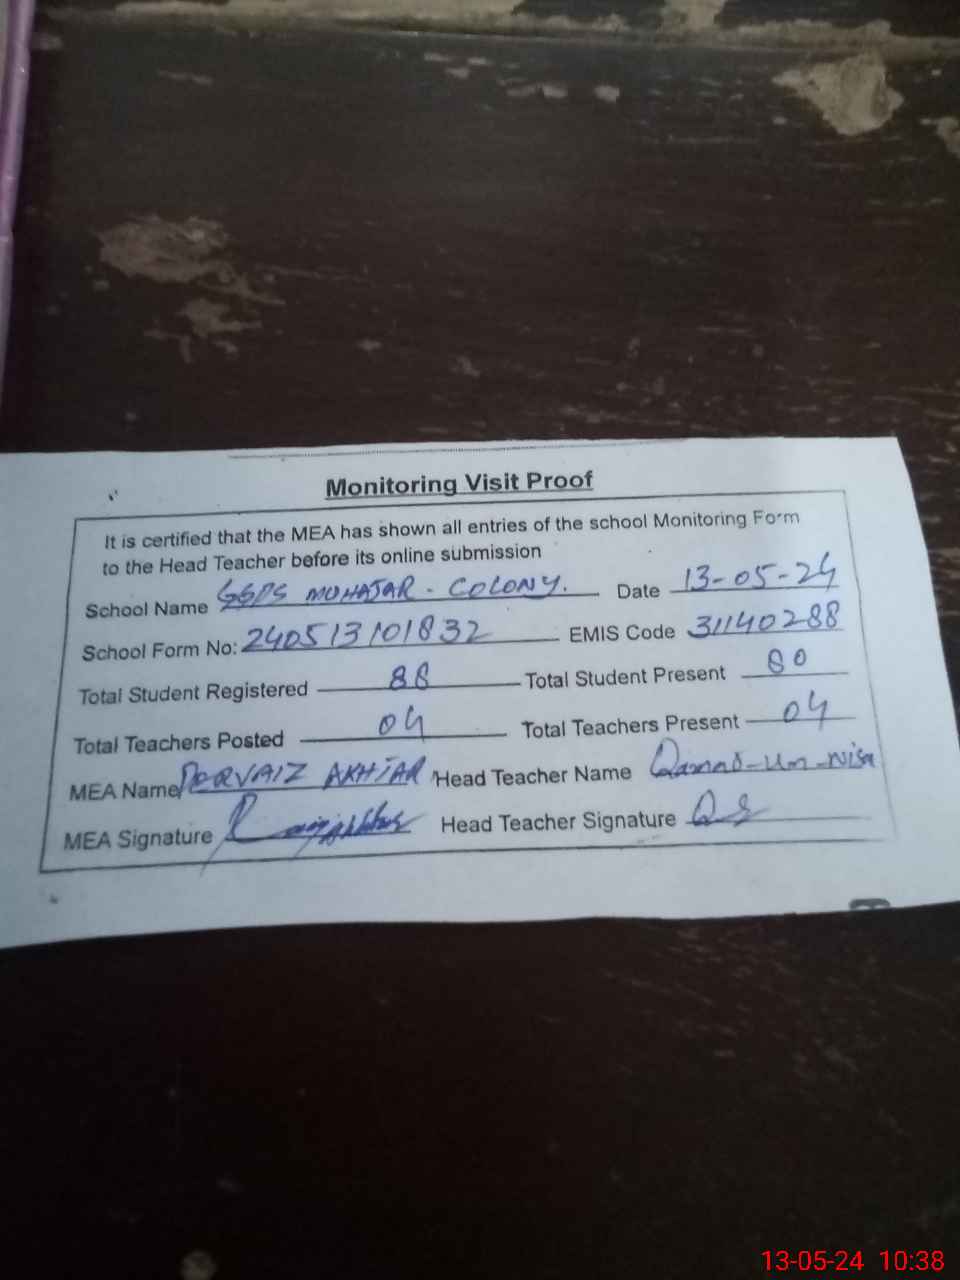 Monitoring Visit Proof
It is certified that the MEA has shown all entries of the school Monitoring Form
to the Head Teacher before its online submission
School Name GGPS MUHAJAR - COLONY. Date 13-05-24
School Form No: 240513101832 EMIS Code 31140288
Total Student Registered 88 Total Student Present 80
Total Teachers Posted 04 Total Teachers Present 04
MEA Name PERVAIZ AKHTAR Head Teacher Name -un-Nisa
MEA Signature Head Teacher Signature
13-05-24 10:38